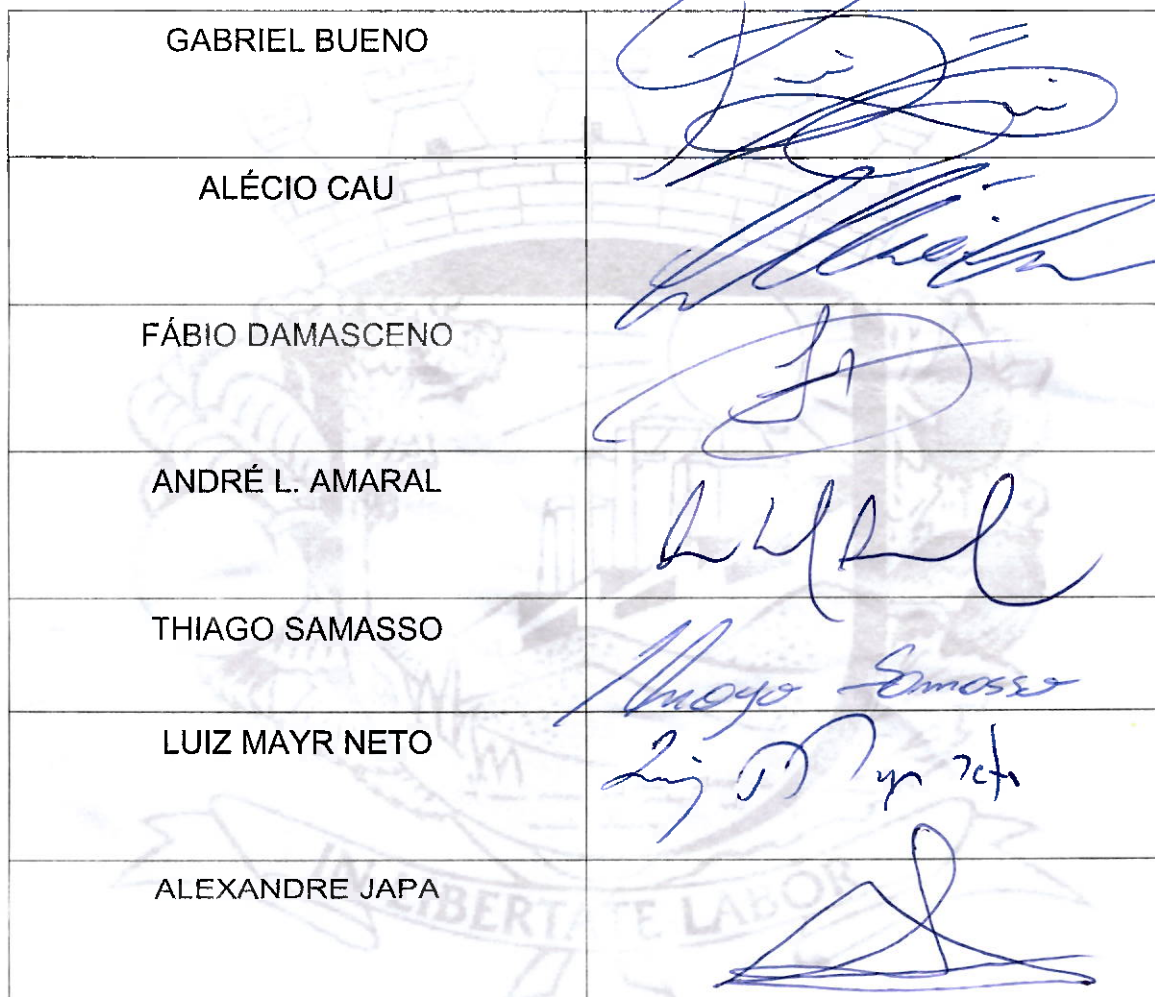 GABRIEL BUENO
ALÉCIO CAU
FÁBIO DAMASCENO
ANDRÉ L. AMARAL
THIAGO SAMASSO
Thiago Samasso
LUIZ MAYR NETO
Luiz Mayr Neto
ALEXANDRE JAPA
IN LIBERTATE LABOR